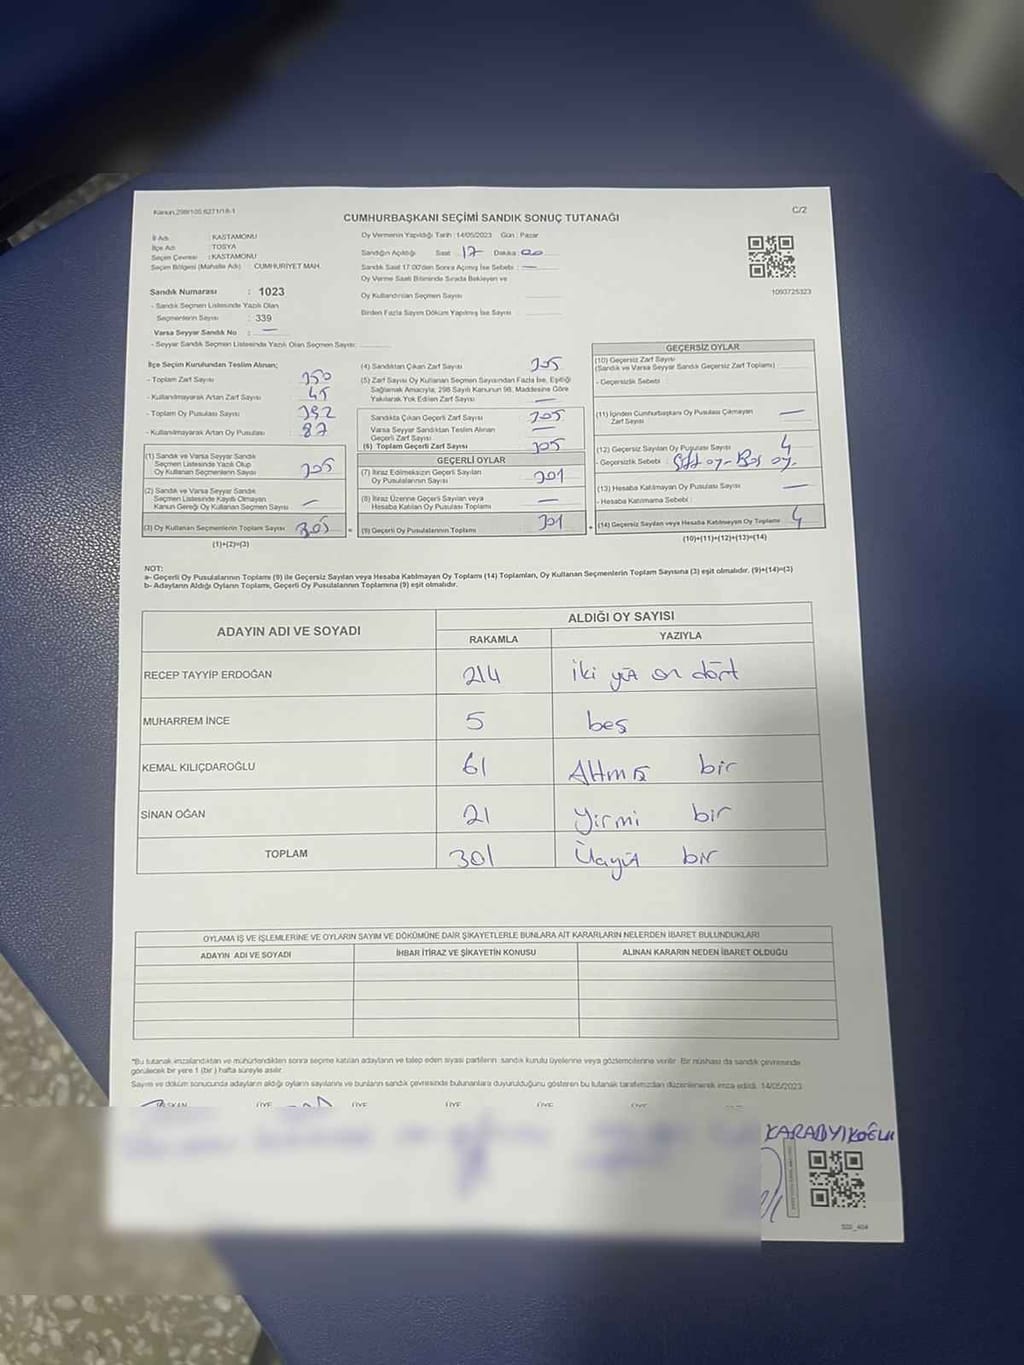 Kanun,298/105,6271/18-1
C/2
CUMHURBAŞKANI SEÇİMİ SANDIK SONUÇ TUTANAĞI
İl Adı : KASTAMONU
İlçe Adı : TOSYA
Seçim Çevresi : KASTAMONU
Seçim Bölgesi (Mahalle Adı) : CUMHURİYET MAH.
Sandık Numarası : 1023
- Sandık Seçmen Listesinde Yazılı Olan
Seçmenlerin Sayısı : 339
Varsa Seyyar Sandık No : —
- Seyyar Sandık Seçmen Listesinde Yazılı Olan Seçmen Sayısı:
Oy Vermenin Yapıldığı Tarih : 14/05/2023 Gün : Pazar
Sandığın Açıldığı Saat 17 Dakika 00
Sandık Saat 17.00'den Sonra Açılmış İse Sebebi : —
Oy Verme Saati Bitiminde Sırada Bekleyen ve
Oy Kullandırılan Seçmen Sayısı
Birden Fazla Sayım Döküm Yapılmış İse Sayısı
1093725323
İlçe Seçim Kurulundan Teslim Alınan;
- Toplam Zarf Sayısı 350
- Kullanılmayarak Artan Zarf Sayısı 45
- Toplam Oy Pusulası Sayısı 392
- Kullanılmayarak Artan Oy Pusulası 87
(1) Sandık ve Varsa Seyyar Sandık
Seçmen Listesinde Yazılı Olup
Oy Kullanan Seçmenlerin Sayısı 305
(2) Sandık ve Varsa Seyyar Sandık
Seçmen Listesinde Kayıtlı Olmayan
Kanun Gereği Oy Kullanan Seçmen Sayısı —
(3) Oy Kullanan Seçmenlerin Toplam Sayısı 305
(1)+(2)=(3)
=
(4) Sandıktan Çıkan Zarf Sayısı 305
(5) Zarf Sayısı Oy Kullanan Seçmen Sayısından Fazla İse, Eşitliği
Sağlamak Amacıyla; 298 Sayılı Kanunun 98. Maddesine Göre
Yakılarak Yok Edilen Zarf Sayısı —
Sandıkta Çıkan Geçerli Zarf Sayısı 305
Varsa Seyyar Sandıktan Teslim Alınan
Geçerli Zarf Sayısı —
(6) Toplam Geçerli Zarf Sayısı 305
GEÇERLİ OYLAR
(7) İtiraz Edilmeksizin Geçerli Sayılan
Oy Pusulalarının Sayısı 301
(8) İtiraz Üzerine Geçerli Sayılan veya
Hesaba Katılan Oy Pusulası Toplamı —
(9) Geçerli Oy Pusulalarının Toplamı 301
+
GEÇERSİZ OYLAR
(10) Geçersiz Zarf Sayısı
(Sandık ve Varsa Seyyar Sandık Geçersiz Zarf Toplamı)
- Geçersizlik Sebebi :
(11) İçinden Cumhurbaşkanı Oy Pusulası Çıkmayan
Zarf Sayısı —
(12) Geçersiz Sayılan Oy Pusulası Sayısı 4
- Geçersizlik Sebebi : oy - Boş oy.
(13) Hesaba Katılmayan Oy Pusulası Sayısı —
- Hesaba Katılmama Sebebi :
(14) Geçersiz Sayılan veya Hesaba Katılmayan Oy Toplamı 4
(10)+(11)+(12)+(13)=(14)
NOT:
a- Geçerli Oy Pusulalarının Toplamı (9) ile Geçersiz Sayılan veya Hesaba Katılmayan Oy Toplamı (14) Toplamları, Oy Kullanan Seçmenlerin Toplam Sayısına (3) eşit olmalıdır. (9)+(14)=(3)
b- Adayların Aldığı Oyların Toplamı, Geçerli Oy Pusulalarının Toplamına (9) eşit olmalıdır.
ADAYIN ADI VE SOYADI
ALDIĞI OY SAYISI
RAKAMLA YAZIYLA
RECEP TAYYİP ERDOĞAN 214 iki yüz on dört
MUHARREM İNCE 5 beş
KEMAL KILIÇDAROĞLU 61 Altmış bir
SİNAN OĞAN 21 Yirmi bir
TOPLAM 301 Üçyüz bir
OYLAMA İŞ VE İŞLEMLERİNE VE OYLARIN SAYIM VE DÖKÜMÜNE DAİR ŞİKAYETLERLE BUNLARA AİT KARARLARIN NELERDEN İBARET BULUNDUKLARI
ADAYIN ADI VE SOYADI İHBAR İTİRAZ VE ŞİKAYETİN KONUSU ALINAN KARARIN NEDEN İBARET OLDUĞU
*Bu tutanak imzalandıktan ve mühürlendikten sonra seçime katılan adayların ve talep eden siyasi partilerin sandık kurulu üyelerine veya gözlemcilerine verilir. Bir nüshası da sandık çevresinde
görülecek bir yere 1 (bir) hafta süreyle asılır.
Sayım ve döküm sonucunda adayların aldığı oyların sayılarını ve bunların sandık çevresinde bulunanlara duyurulduğunu gösteren bu tutanak tarafımızdan düzenlenerek imza edildi. 14/05/2023
BAŞKAN ÜYE ÜYE ÜYE ÜYE
KARABIYIKOĞLU